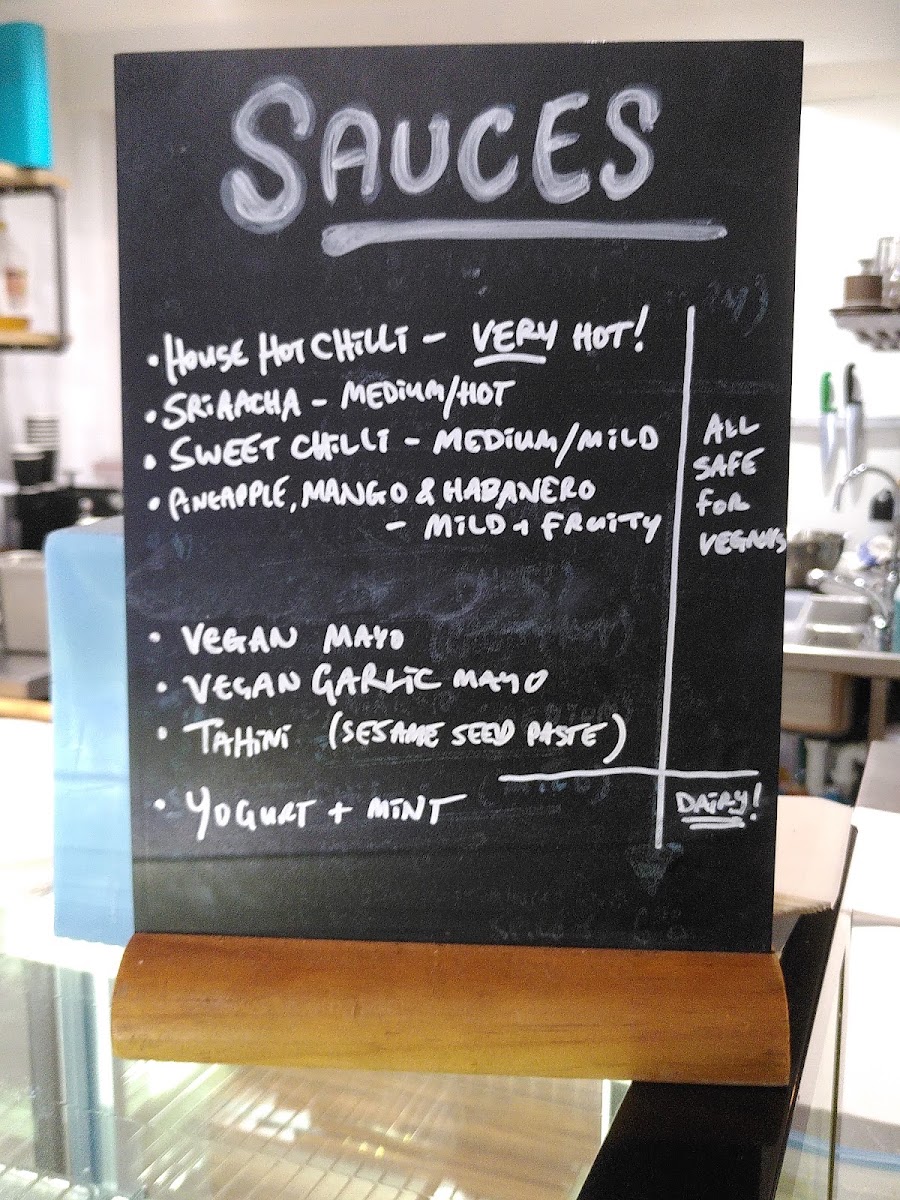 SAUCES
• HOUSE HOT CHILLI – VERY HOT!
• SRIRACHA – MEDIUM/HOT
• SWEET CHILLI – MEDIUM/MILD
• PINEAPPLE, MANGO & HABANERO
– MILD + FRUITY
ALL
SAFE
FOR
VEGANS
• VEGAN MAYO
• VEGAN GARLIC MAYO
• TAHINI (SESAME SEED PASTE)
• YOGURT + MINT
DAIRY!